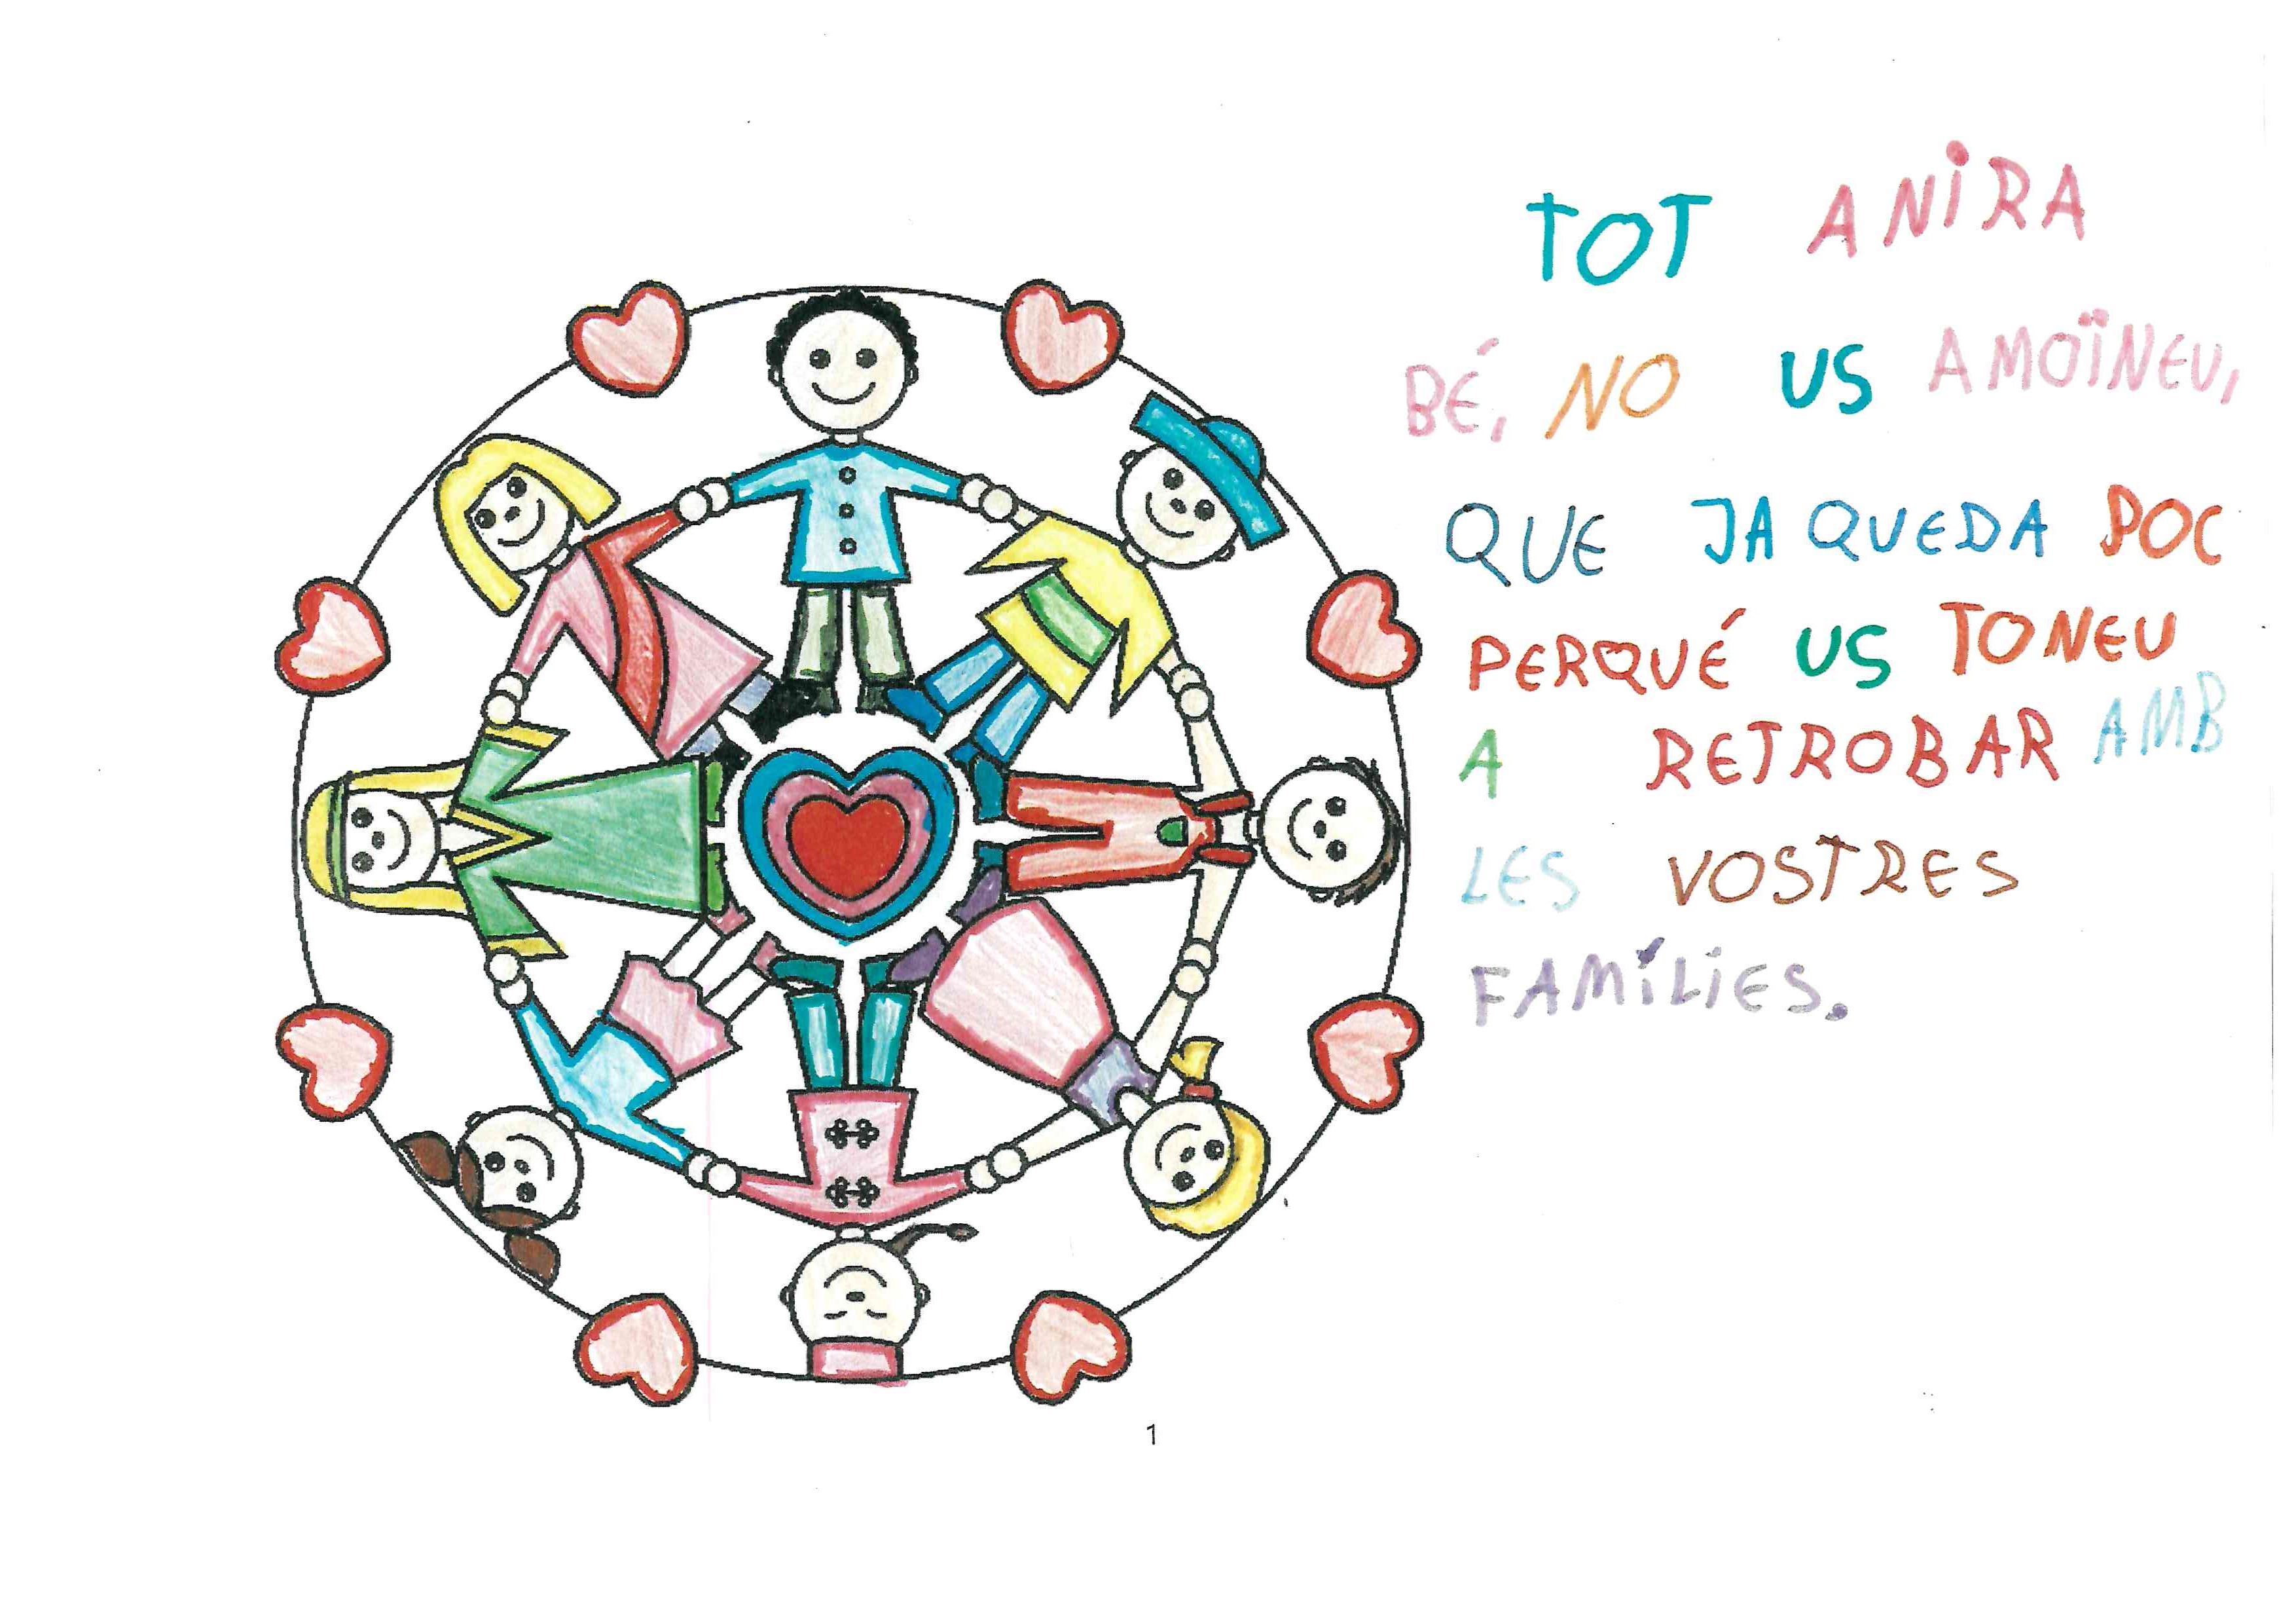 TOT ANiRA
BÉ, NO US AMOÏNEU,
QUE JA QUEDA POC
PERQUÉ US TONEU
A RETROBAR AMB
LES VOSTRES
FAMÍLiES.
1